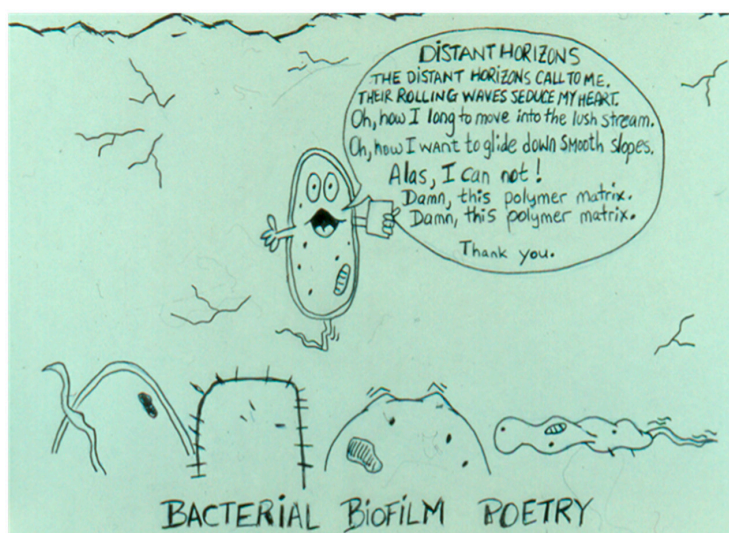 DISTANT HORIZONS
THE DISTANT HORIZONS CALL TO ME.
THEIR ROLLING WAVES SEDUCE MY HEART.
Oh, how I long to move into the lush stream.
Oh, how I want to glide down smooth slopes.
Alas, I can not!
Damn, this polymer matrix.
Damn, this polymer matrix.
Thank you.
BACTERIAL BIOFILM POETRY